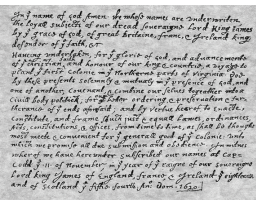 In ye name of God Amen. We whose names are underwriten,
the loyall subjects of our dread soveraigne Lord King James
by ye grace of God, of great Britaine, franc, & Ireland king,
defender of ye faith, &c.
Haveing undertaken, for ye glorie of God, and advancemente
of ye christian faith and honour of our king & countrie, a voyage to
plant ye first colonie in ye Northerne parts of Virginia. Doe
by these presents solemnly & mutualy in ye presence of God, and
one of another, covenant, & combine our selves togeather into a
Civill body politick; for our better ordering, & preservation & fur
therance of ye ends aforesaid; and by vertue hearof to enacte,
constitute, and frame shuch just & equall Lawes, ordinances,
Acts, constitutions, & offices, from time to time, as shall be thought
most meete & convenient for ye generall good of ye Colonie: unto
which we promise all due submission and obedience. In witnes
wherof we have hereunder subscribed our names at Cape
Codd ye 11 of November in ye year of ye raigne of our soveraigne
Lord king James of England, franc, & Ireland ye eighteenth
and of Scotland ye fiftie fourth. Ano Dom. 1620